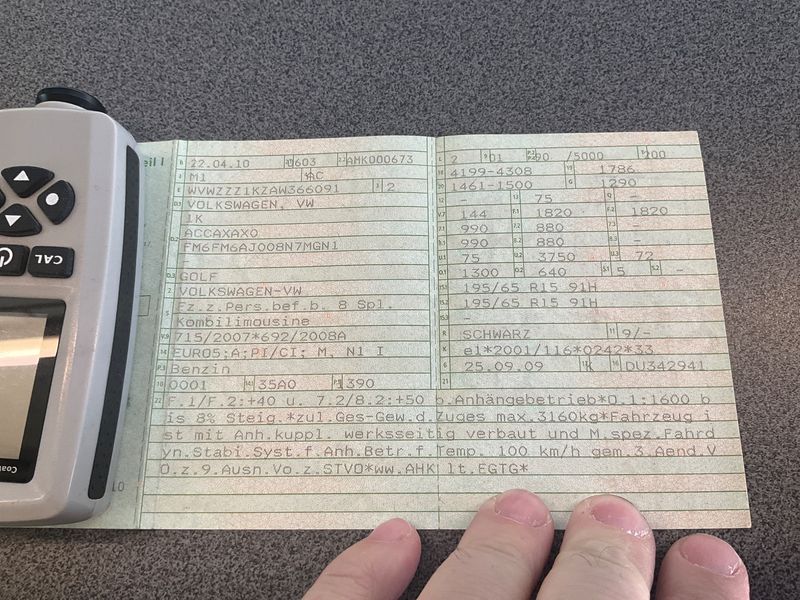 eil I
B 22.04.10 2.1 0603 2.2 AMK000673
J M1 4 AC
E WVWZZZ1KZAW366091 3 2
D.1 VOLKSWAGEN, VW
1K
D.2 ACCAXAX0
FM6FM6AJ008N7MGN1
-
D.3 GOLF
2 VOLKSWAGEN-VW
5 Fz.z.Pers.bef.b. 8 Spl.
Kombilimousine
V.9 715/2007*692/2008A
14 EURO5;A;PI/CI; M, N1 I
P.3 Benzin
10 0001 14.1 35A0 P.1 1390
L 2 9 01 P.2 P.4 090 /5000 T 200
18 4199-4308 19 1786
20 1461-1500 G 1290
12 - 13 75 Q -
V.7 144 F.1 1820 F.2 1820
7.1 990 7.2 880 7.3 -
8.1 990 8.2 880 8.3 -
U.1 75 U.2 3750 U.3 72
O.1 1300 O.2 640 S.1 5 S.2 -
15.1 195/65 R15 91H
15.2 195/65 R15 91H
15.3 -
R SCHWARZ 11 9/-
K e1*2001/116*0242*33
6 25.09.09 17 K 16 DU342941
21
22 F.1/F.2:+40 u. 7.2/8.2:+50 b.Anhängebetrieb*O.1:1600 b
is 8% Steig.*zul.Ges-Gew.d.Zuges max.3160kg*Fahrzeug i
st mit Anh.kuppl. werksseitig verbaut und M.spez.Fahrd
yn.Stabi.Syst.f.Anh.Betr.f.Temp. 100 km/h gem.3.Aend.V
O.z.9.Ausn.Vo.z.STVO*ww.AHK lt.EGTG*
CAL